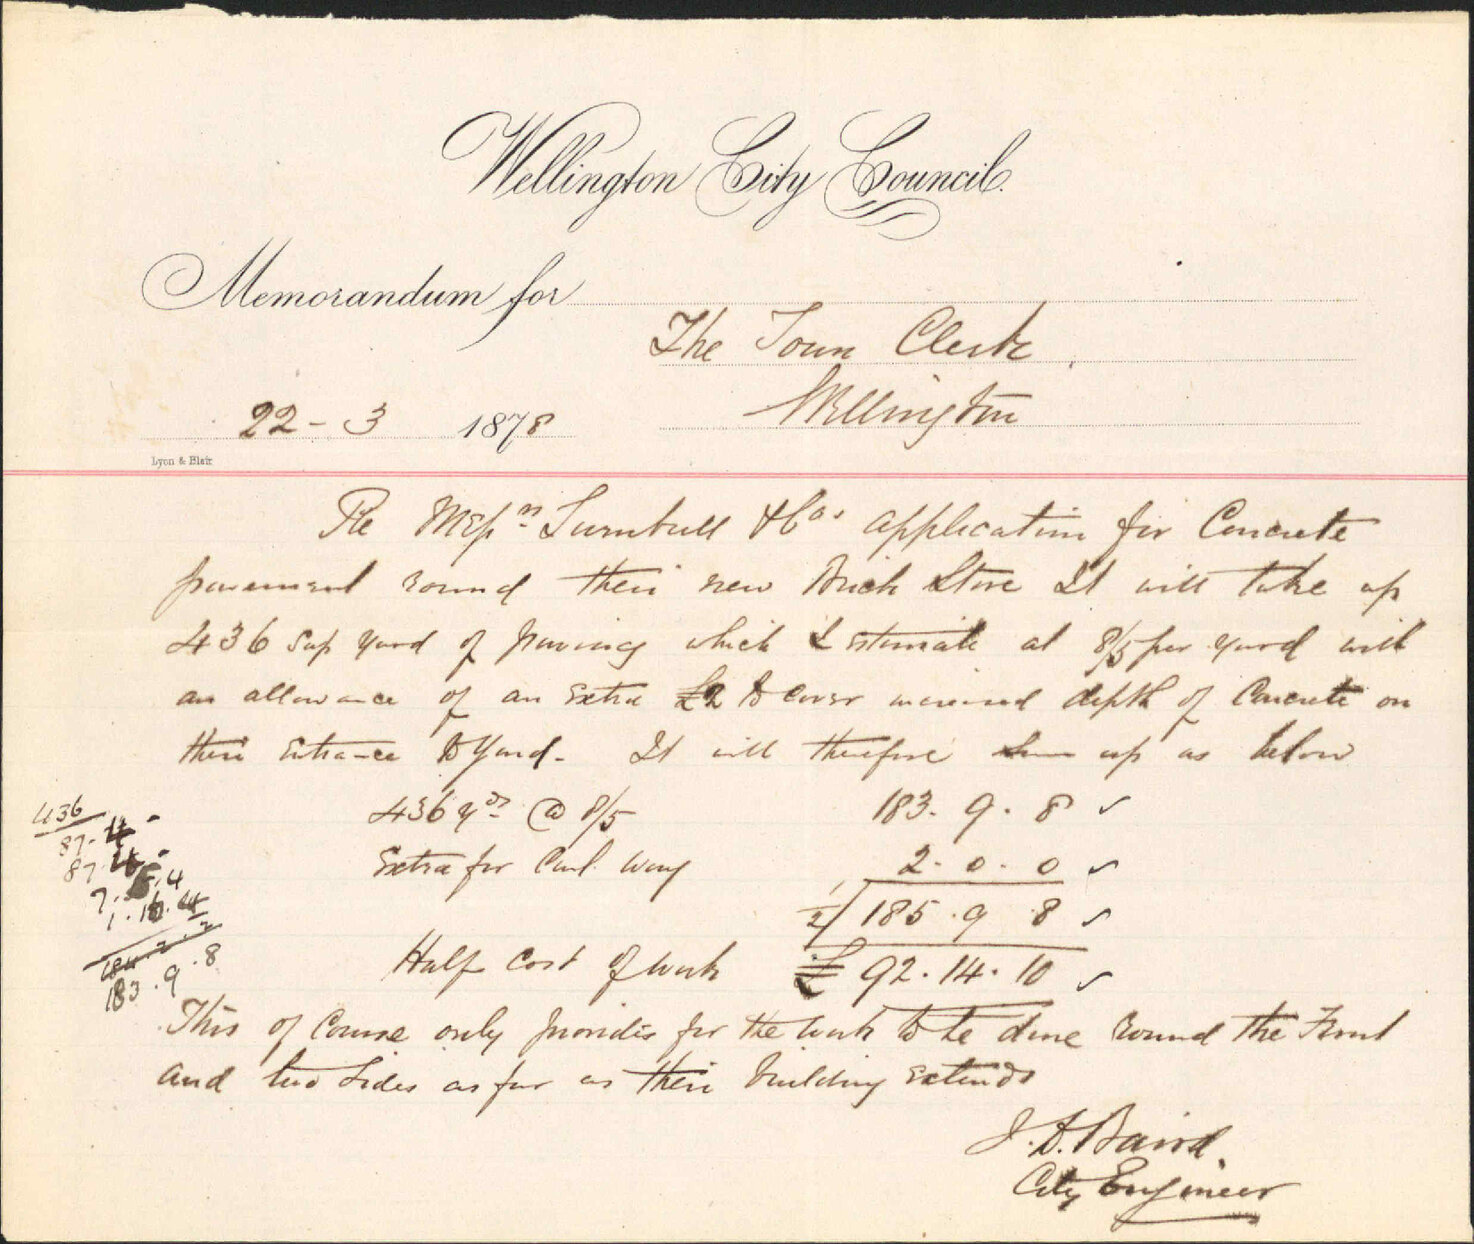 Wellington City Council.
Memorandum for
The Town Clerk,
Wellington
22 - 3 1878
Lyon & Blair
Re Messrs Turnbull & Cos. application for Concrete
pavement round their new Brick Store It will take up
436 Sup yard of paving which I estimate at 8/5 per yard with
an allowance of an extra £2 to cover increased depth of Concrete on
their entrance to Yard. It will therefore sum up as below
436 yds @ 8/5 183. 9. 8 ✓
Extra for Cart way 2. 0. 0 ✓
1/2 185. 9. 8 ✓
Half Cost of work £ 92. 14. 10 ✓
436
87. 4. -
87. 4. -
7. 5. 4
1. 16. 4
183. 9. 8
This of Course only provides for the work to be done round the Front
and two sides as far as their building extends
J. D. Baird.
City Engineer